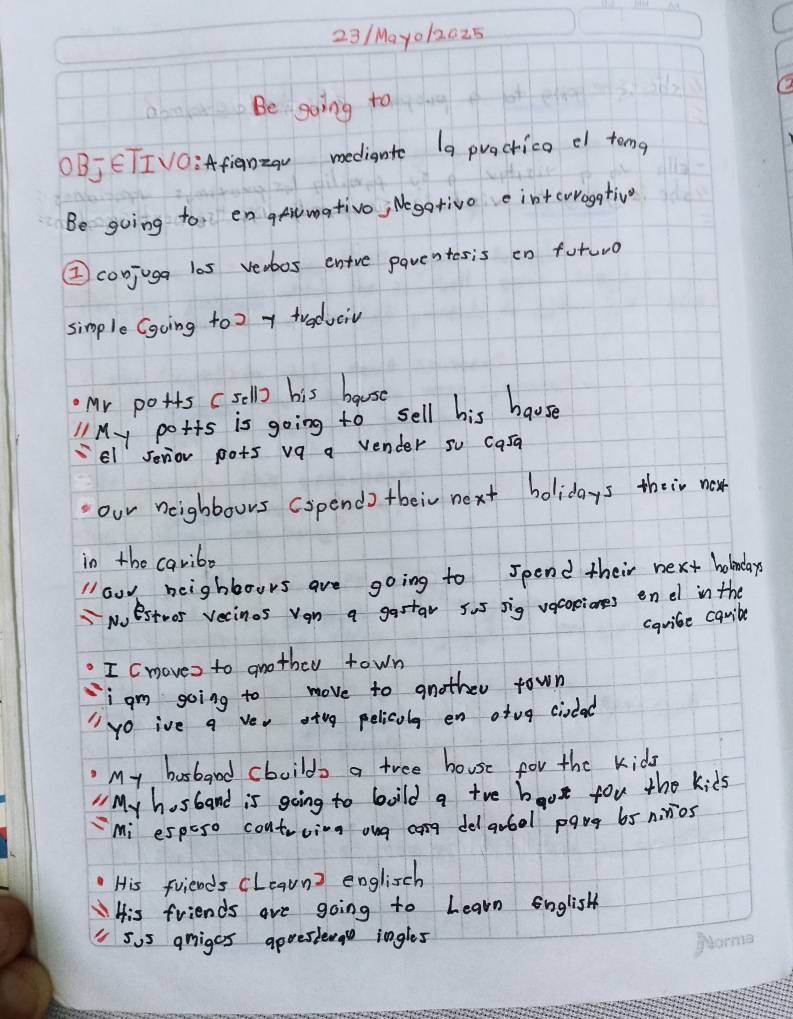 23/Mayo/2025
Be going to
OBJETIVO: Afianzar mediante la practica el tema
Be going to en afirmativo, Negativo e interrogativo
① conjuga los verbos entre parentesis en futuro
simple (going to) y traducir
• Mr potts (sell) his house
" My potts is going to sell his house
= el señor pots va a vender su casa
• our neighbours (spend) their next holidays their next
in the caribe
" our neighbours are going to spend their next holindays
= Nuestros vecinos van a gastar sus sig vacaciones en el in the
caribe caribe
• I (move) to another town
= i am going to move to another town
" yo ire a ver otra pelicula en otra ciudad
• My husband (build) a tree house for the kids
" My husband is going to build a tre house for the kids
= mi esposo contruira una casa del arbol para los niños
• His friends (Learn) englisch
= His friends are going to Learn English
" sus amigos
ingles
Norma